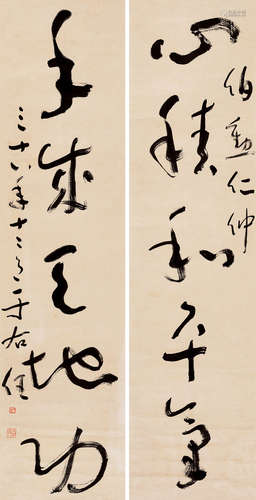 心積和平氣
伯勳仁仲
手成天地功
三十年十二月于右任